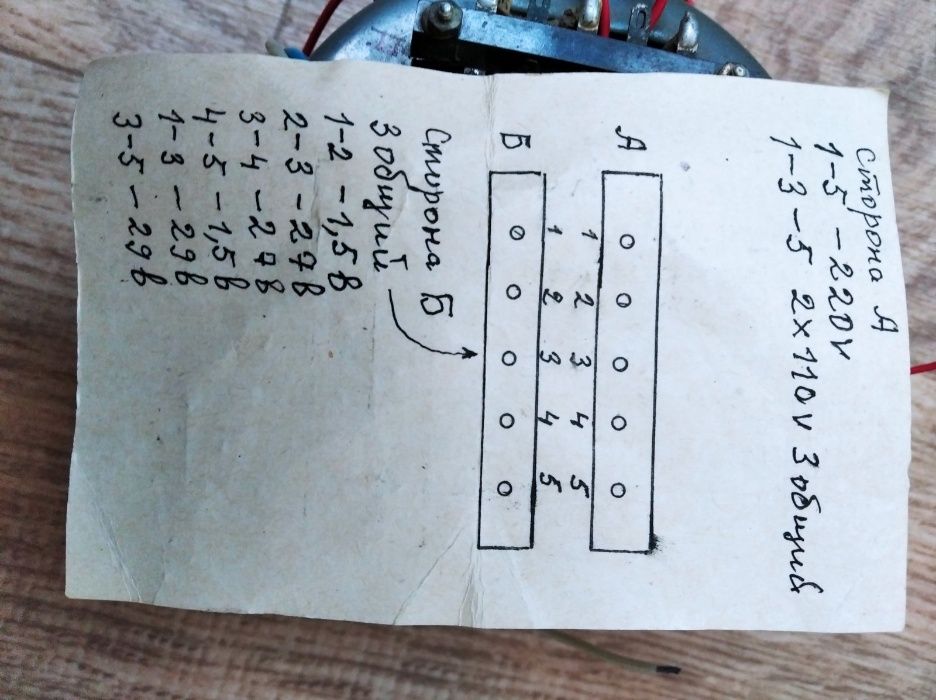 Сторона А
1-5 - 220V
1-3-5 2x110V 3 общий
А
1 2 3 4 5
1 2 3 4 5
Б
Сторона Б
3 общий
1-2 - 1,5В
2-3 - 27В
3-4 - 27В
4-5 - 1,5В
1-3 - 29В
3-5 - 29В